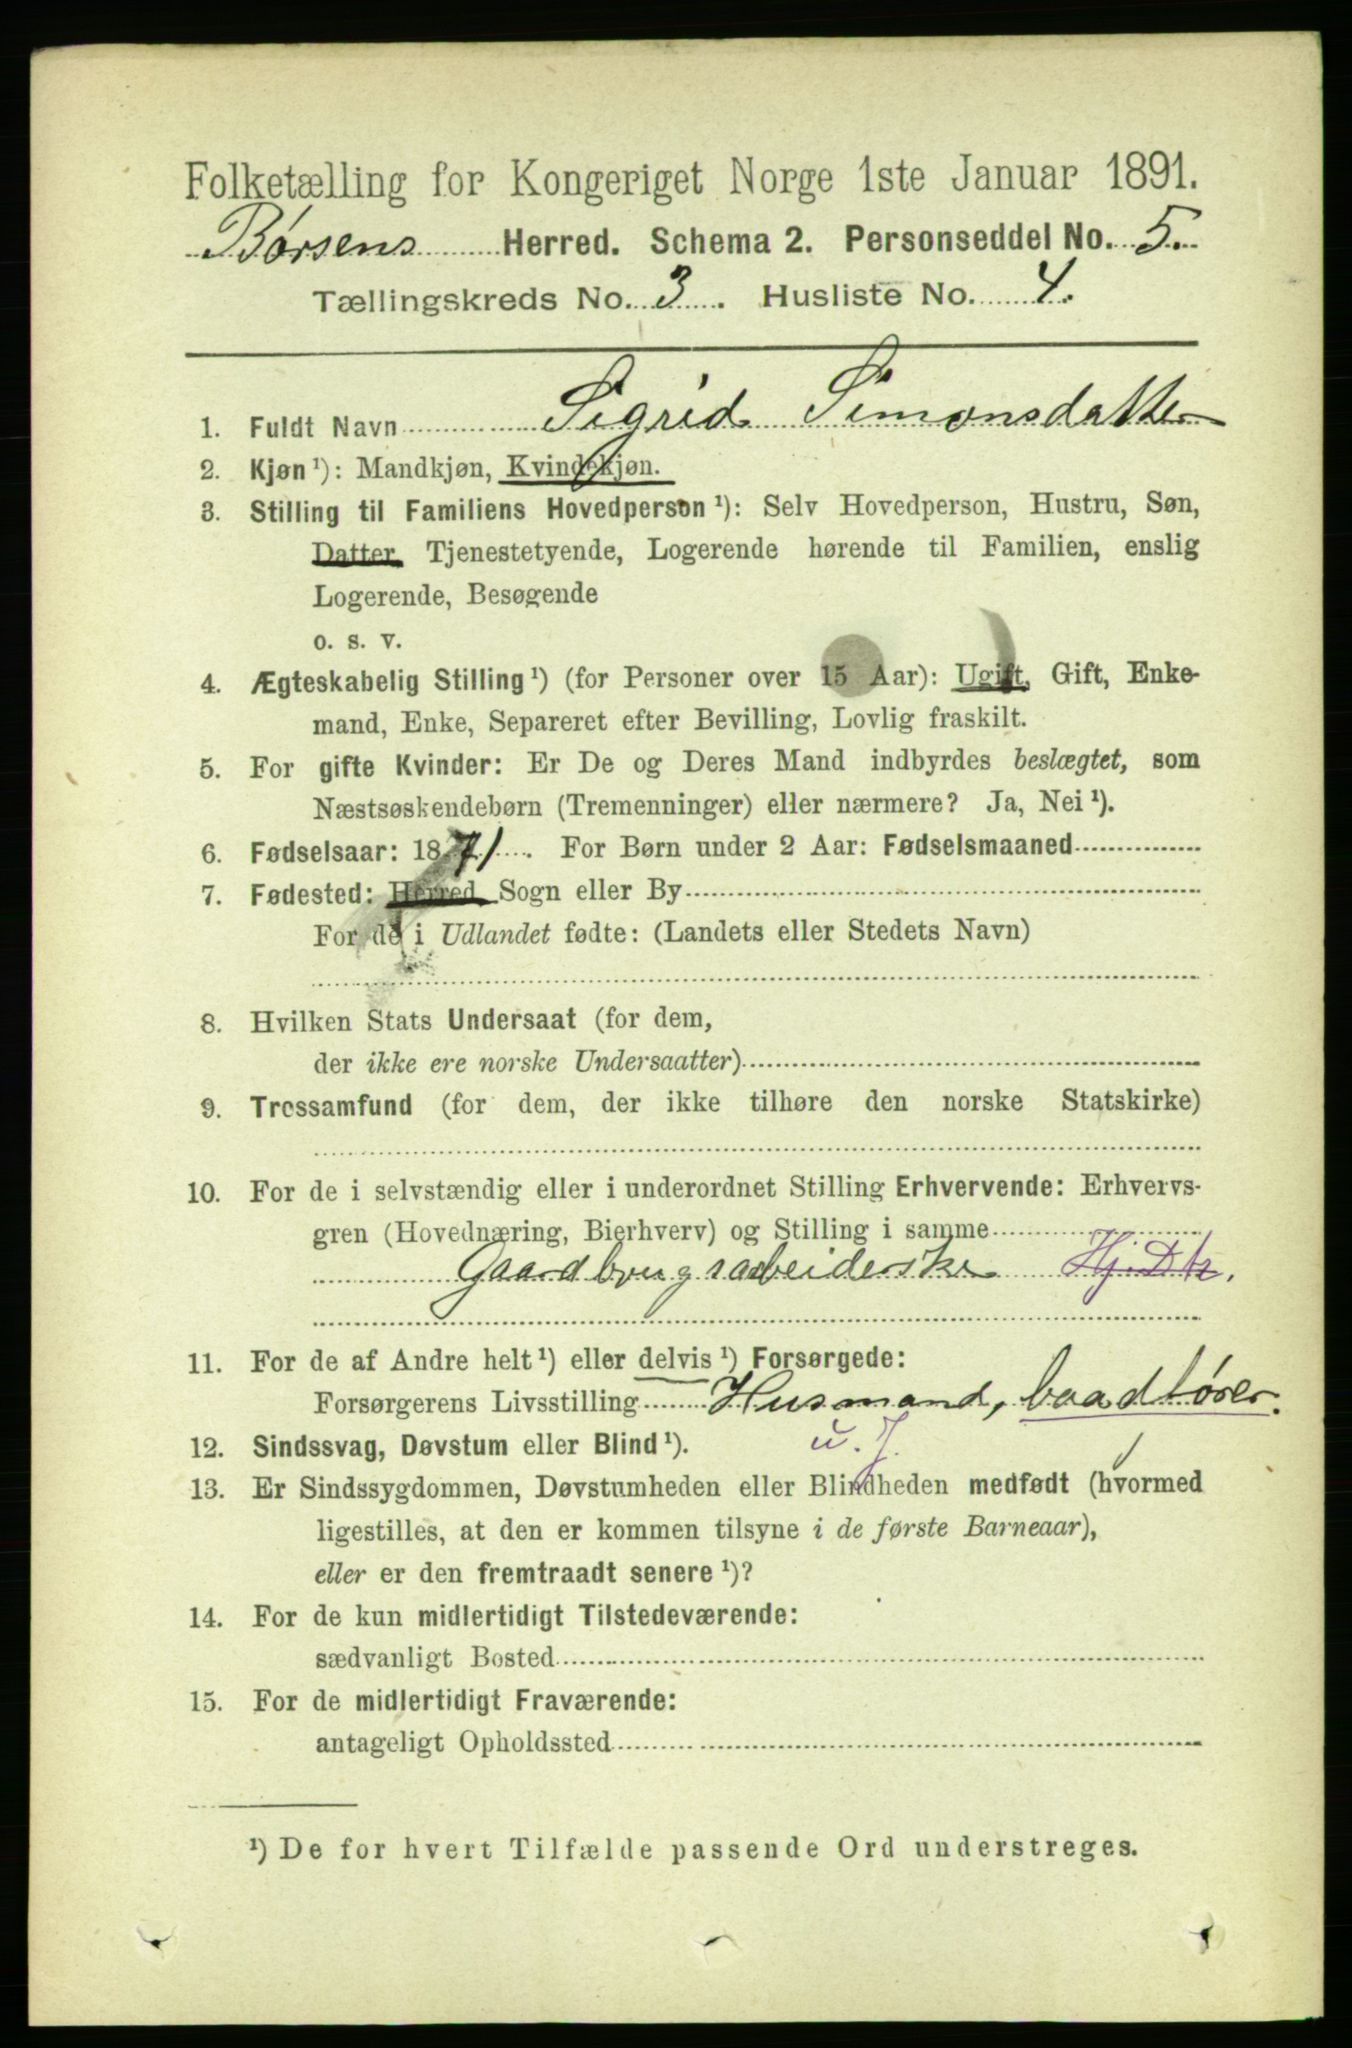 Folketælling for Kongeriget Norge 1ste Januar 1891.
Børsens Herred. Schema 2. Personseddel No. 5.
Tællingskreds No. 3. Husliste No. 4.
1. Fuldt Navn Sigrid Simonsdatter
2. Kjøn ¹): Mandkjøn, Kvindekjøn.
3. Stilling til Familiens Hovedperson ¹): Selv Hovedperson, Hustru, Søn,
Datter, Tjenestetyende, Logerende hørende til Familien, enslig
Logerende, Besøgende
o. s. v.
4. Ægteskabelig Stilling ¹) (for Personer over 15 Aar): Ugift, Gift, Enke-
mand, Enke, Separeret efter Bevilling, Lovlig fraskilt.
5. For gifte Kvinder: Er De og Deres Mand indbyrdes beslægtet, som
Næstsøskendebørn (Tremenninger) eller nærmere? Ja, Nei ¹).
6. Fødselsaar: 1871. For Børn under 2 Aar: Fødselsmaaned
7. Fødested: Herred, Sogn eller By
For de i Udlandet fødte: (Landets eller Stedets Navn)
8. Hvilken Stats Undersaat (for dem,
der ikke ere norske Undersaatter)
9. Trossamfund (for dem, der ikke tilhøre den norske Statskirke)
10. For de i selvstændig eller i underordnet Stilling Erhvervende: Erhvervs-
gren (Hovednæring, Bierhverv) og Stilling i samme
Gaardbrugsarbeiderske Hj. Dtr.
11. For de af Andre helt ¹) eller delvis ¹) Forsørgede:
Forsørgerens Livsstilling Husmand, baadfører.
12. Sindssvag, Døvstum eller Blind ¹). u. J.
13. Er Sindssygdommen, Døvstumheden eller Blindheden medfødt (hvormed
ligestilles, at den er kommen tilsyne i de første Barneaar),
eller er den fremtraadt senere ¹)?
14. For de kun midlertidigt Tilstedeværende:
sædvanligt Bosted
15. For de midlertidigt Fraværende:
antageligt Opholdssted
¹) De for hvert Tilfælde passende Ord understreges.